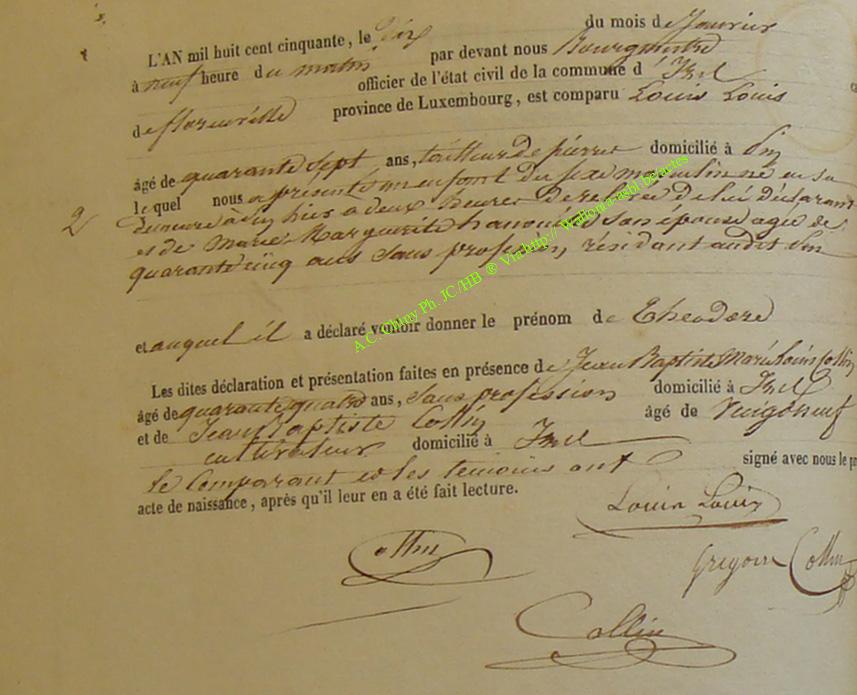 L'AN mil huit cent cinquante, le Dix du mois de Janvier
à neuf heure du matin par devant nous Bourgmestre
officier de l'état civil de la commune d' Izel
de florenville province de Luxembourg, est comparu Louis Louis
âgé de quarante sept ans, tailleur de pierres domicilié à Pin
lequel nous a présenté un enfant du sexe masculin né en sa
2 demeure à Pin hier à deux heures de relevée de lui déclarant
et de Marie Marguerite hanonée son epouse agée de
quarante cinq ans sans profession, résidant audit Pin
et auquel il a déclaré vouloir donner le prénom de Theodore
Les dites déclaration et présentation faites en présence de Jean Baptiste Marie Louis Collin
âgé de quarante quatre ans, sans profession domicilié à Izel
et de Jean Baptiste Collin âgé de Vingt neuf
cultivateur domicilié à Izel
le Comparant et les temoins ont signé avec nous le pr
acte de naissance, après qu'il leur en a été fait lecture.
Louis Louis
Collin
Gregoire Collin
Collin
A.C. Chiny Ph. JC/HB ® Via http:// Wallonia-asbl.be/artes